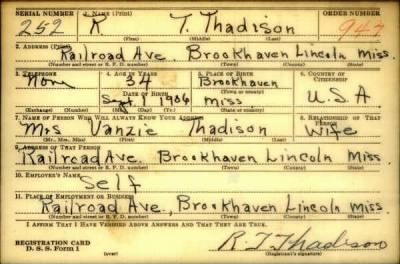 SERIAL NUMBER 1. NAME (Print) ORDER NUMBER
252 R T. Thadison 947
(First) (Middle) (Last)
2. ADDRESS (Print)
Railroad Ave. Brookhaven Lincoln Miss.
(Number and street or R. F. D. number) (Town) (County) (State)
3. TELEPHONE 4. AGE IN YEARS 5. PLACE OF BIRTH 6. COUNTRY OF CITIZENSHIP
None 34 Brookhaven
DATE OF BIRTH (Town or county)
Sept. 1906 Miss U.S.A
(Exchange) (Number) (Mo.) (Day) (Yr.) (State or country)
7. NAME OF PERSON WHO WILL ALWAYS KNOW YOUR ADDRESS 8. RELATIONSHIP OF THAT PERSON
Mrs Vanzie Thadison Wife
(Mr., Mrs., Miss) (First) (Middle) (Last)
9. ADDRESS OF THAT PERSON
Railroad Ave. Brookhaven Lincoln Miss.
(Number and street or R. F. D. number) (Town) (County) (State)
10. EMPLOYER'S NAME
Self
11. PLACE OF EMPLOYMENT OR BUSINESS
Railroad Ave., Brookhaven Lincoln Miss.
(Number and street or R. F. D. number) (Town) (County) (State)
I AFFIRM THAT I HAVE VERIFIED ABOVE ANSWERS AND THAT THEY ARE TRUE.
REGISTRATION CARD
D. S. S. Form 1 (over) R. T Thadison
(Registrant's signature)